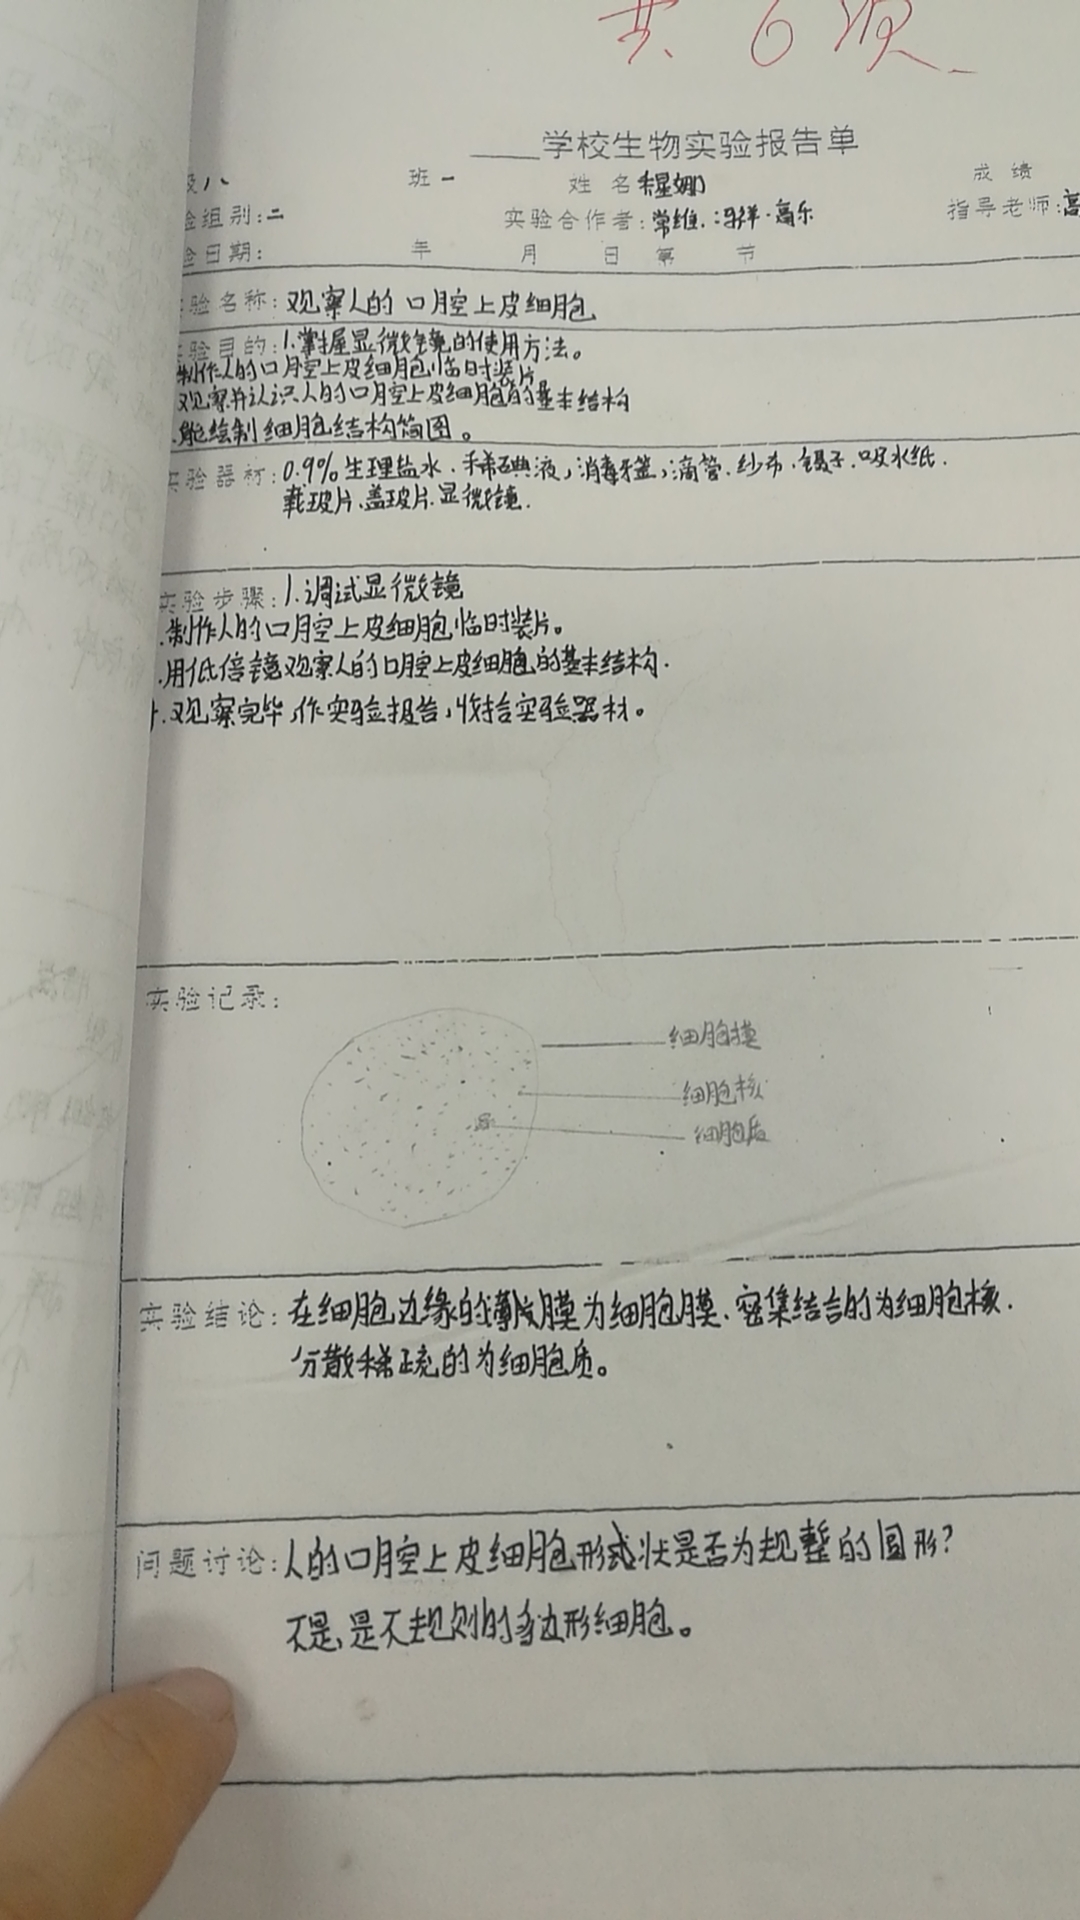 共 6 项
____学校生物实验报告单
级八 班一 姓 名 程娜 成 绩
验组别:二 实验合作者:常维.冯祥.高乐 指导老师:高
验日期: 年 月 日 第 节
实验名称:观察人的口腔上皮细胞
实验目的:1.掌握显微镜的使用方法。
制作人的口腔上皮细胞临时装片
观察并认识人的口腔上皮细胞的基本结构
.能绘制细胞结构简图。
实验器材:0.9%生理盐水.稀碘液,消毒牙签,滴管.纱布.镊子.吸水纸.
载玻片.盖玻片.显微镜.
实验步骤:1.调试显微镜
.制作人的口腔上皮细胞临时装片。
.用低倍镜观察人的口腔上皮细胞的基本结构.
.观察完毕,作实验报告,收拾实验器材。
实验记录:
细胞摸
细胞核
细胞质
实验结论:在细胞边缘的薄皮膜为细胞膜.密集结合的为细胞核.
分散稀疏的为细胞质。
问题讨论:人的口腔上皮细胞形状是否为规整的圆形?
不是,是不规则的多边形细胞。